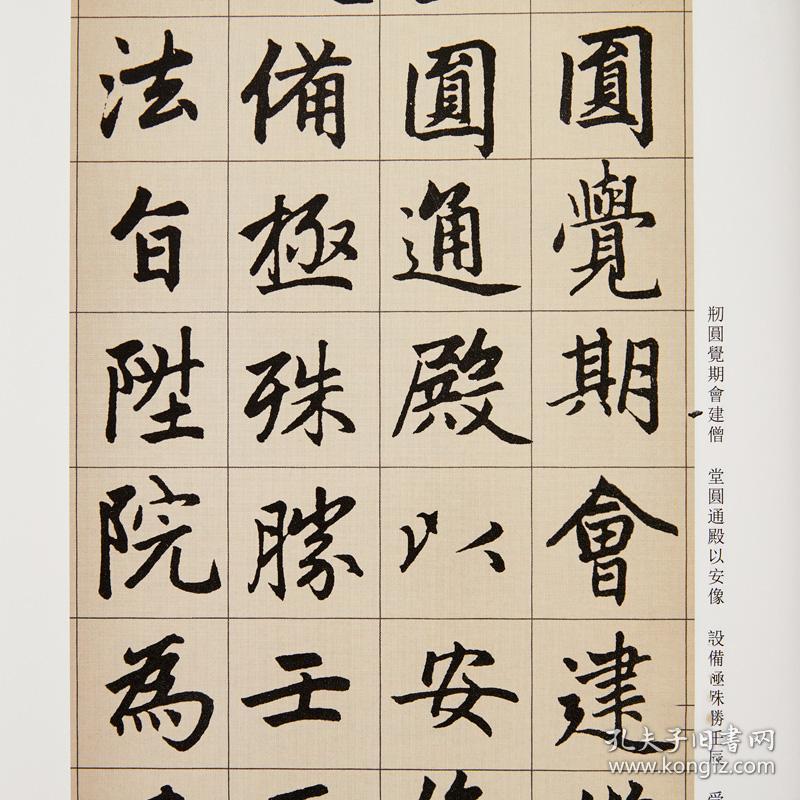 圓覺期會建
圓通殿以安
備極殊勝壬
法旨陞院為
剏圓覺期會建僧 堂圓通殿以安像 設備極殊勝壬辰
孔夫子旧書网
www.kongfz.com